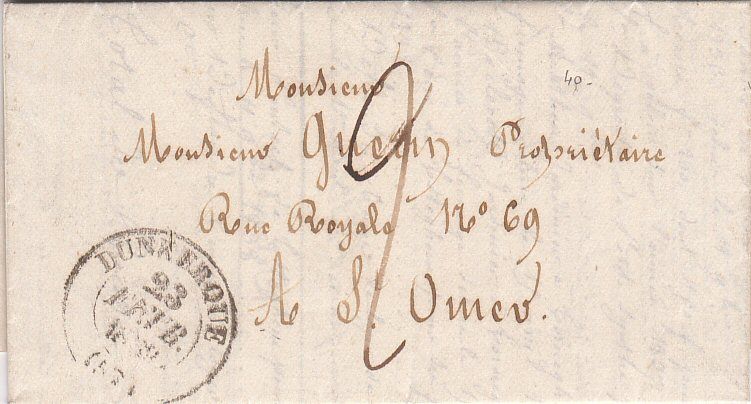 Monsieur
40-
Monsieur Guerin Propriétaire
Rue Royale No 69
A St. Omer.
2
DUNKERQUE
23
FEVR.